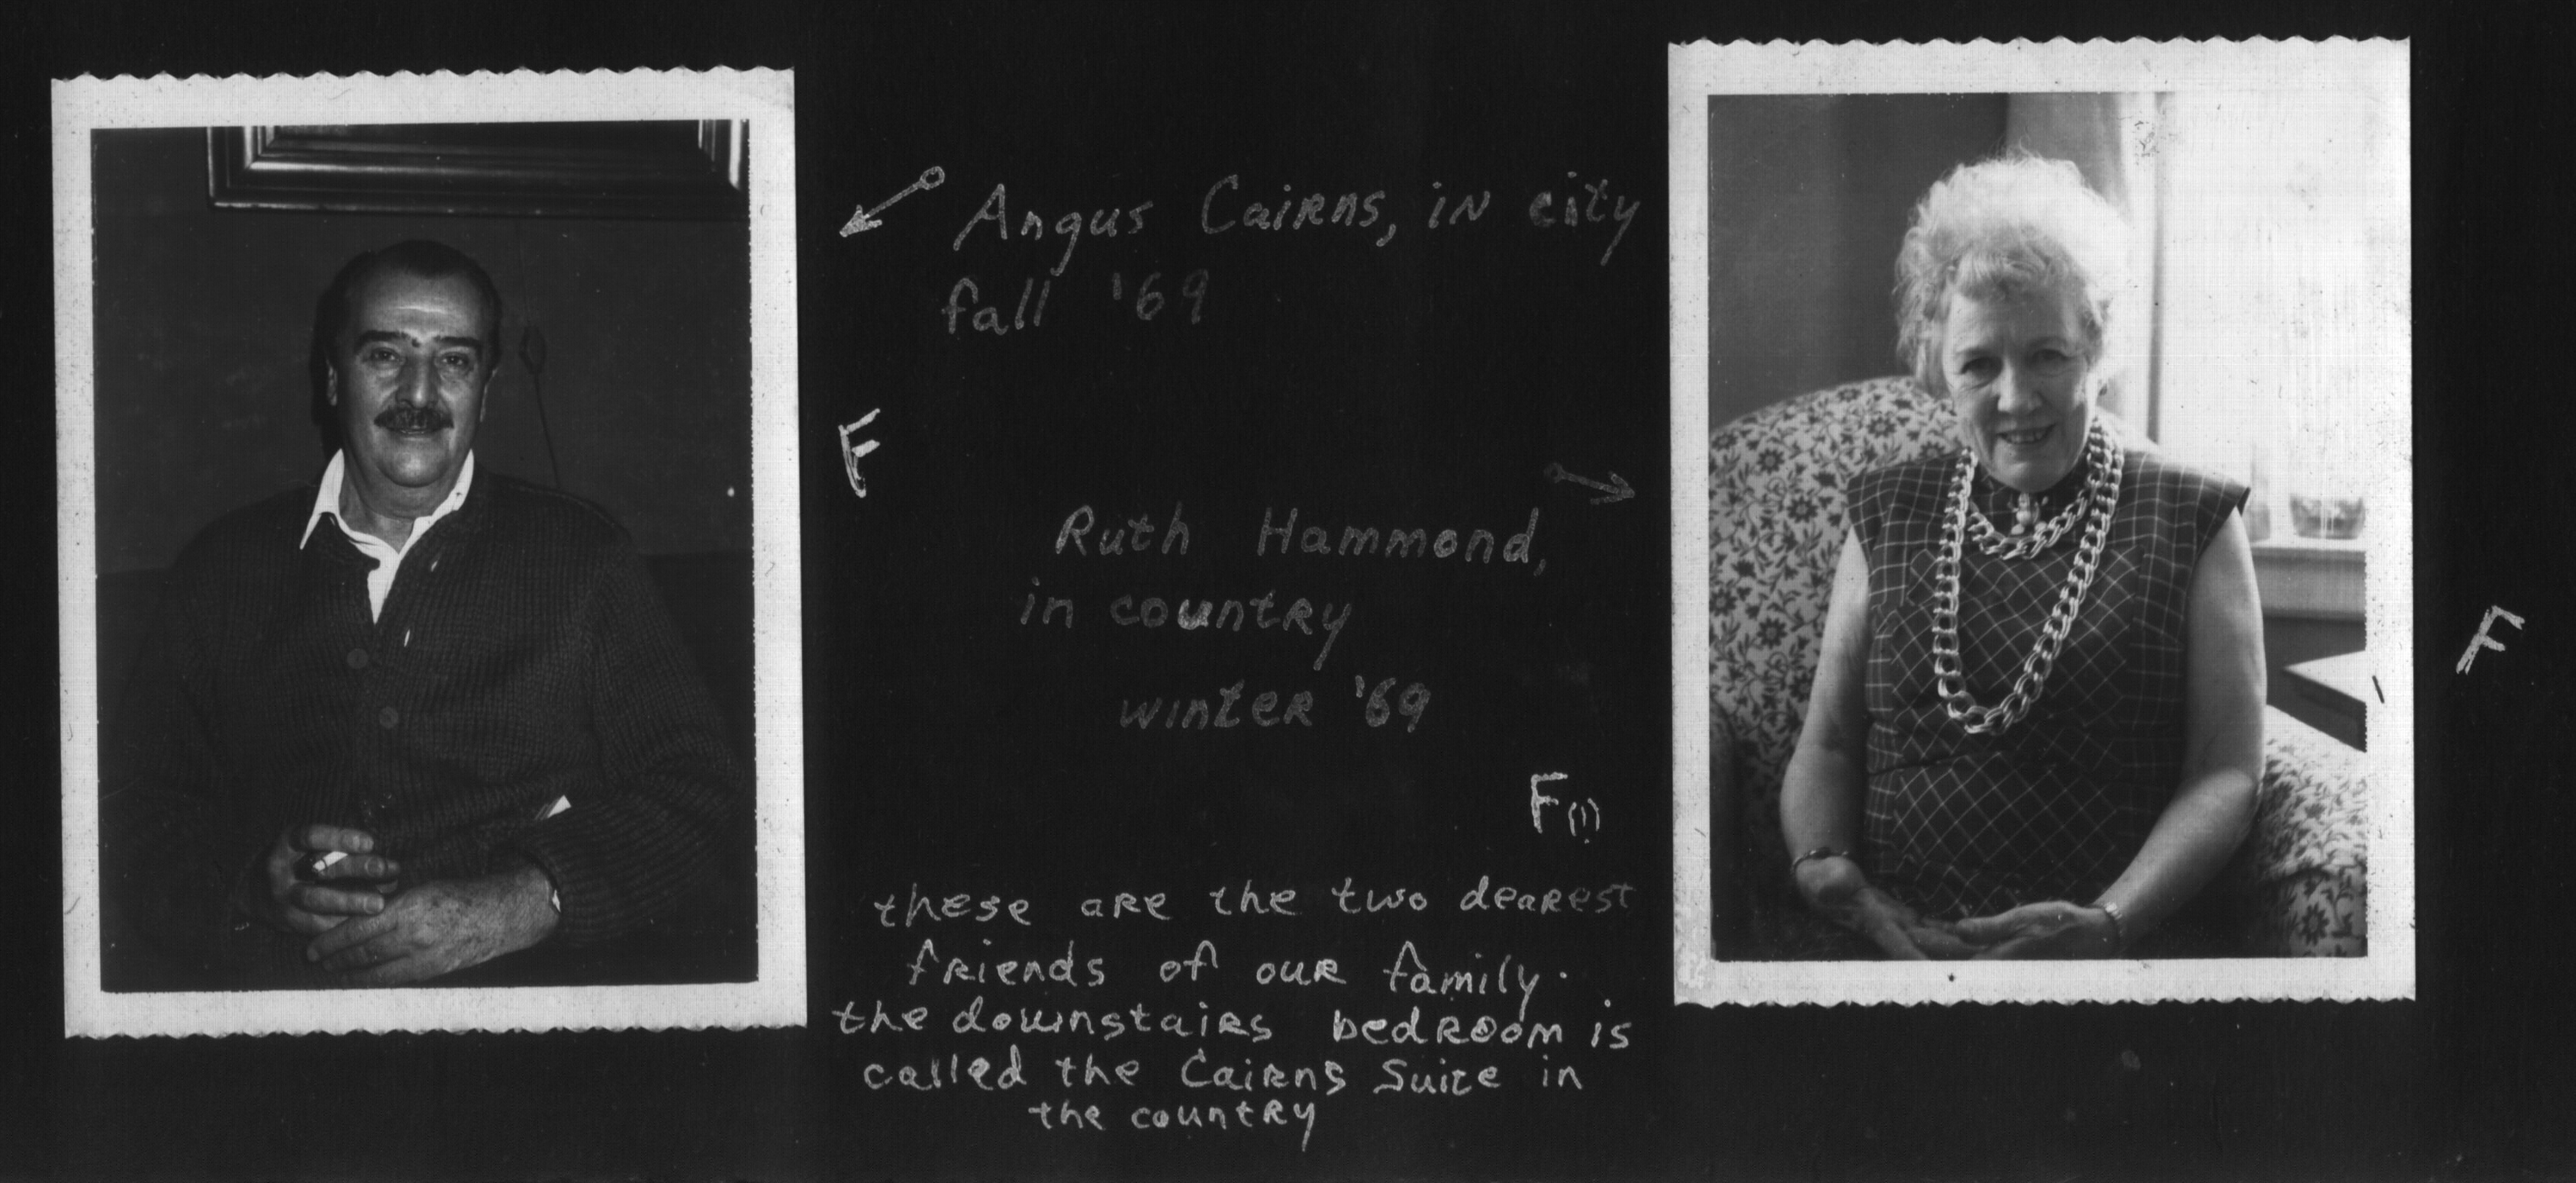 Angus Cairns, in city
fall '69
F
Ruth Hammond,
in country
winter '69
F
F(!)
these are the two dearest
friends of our family.
the downstairs bedroom is
called the Cairns Suite in
the country